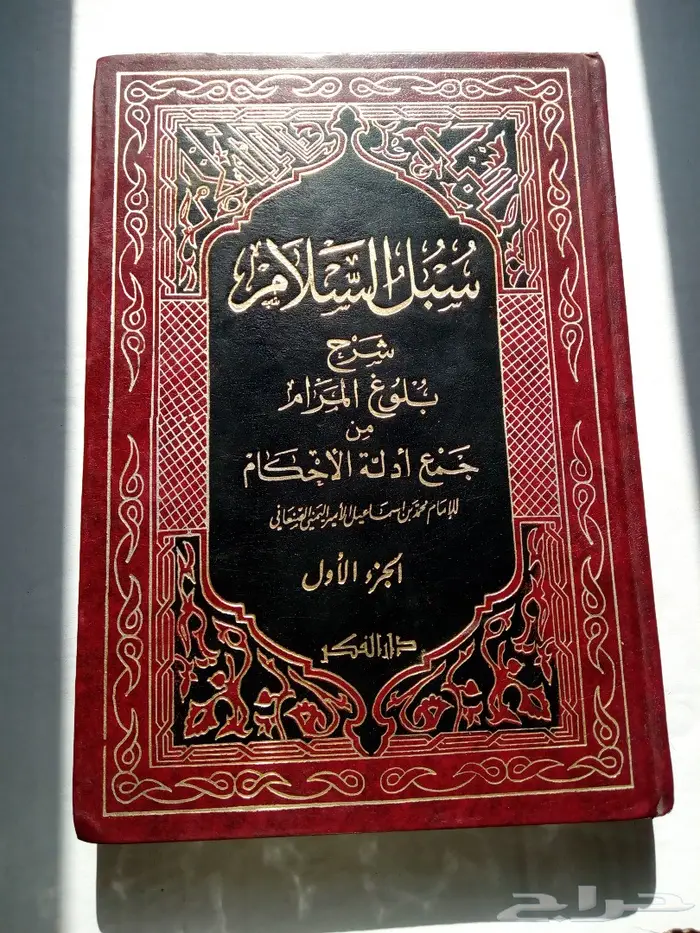 سُبُلُ السَّلَامِ
شَرْح
بُلُوغ المَرَام
مِن
جَمْع أدلّة الأحكام
للإمام محمد بن اسماعيل الأمير اليمني الصنعاني
الجزء الأول
دار الفكر
حراج